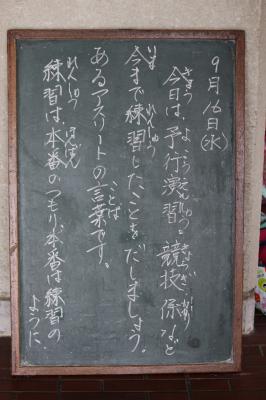 9月16日(水)
きょう よこうえんしゅう きょうぎ かかり
今日は、予行演習、競技、係など
いま れんしゅう
今まで練習したことをだしましょう。
ことば
あるアスリートの言葉です。
れんしゅう ほんばん
練習は、本番のつもり、本番は練習の
ように、